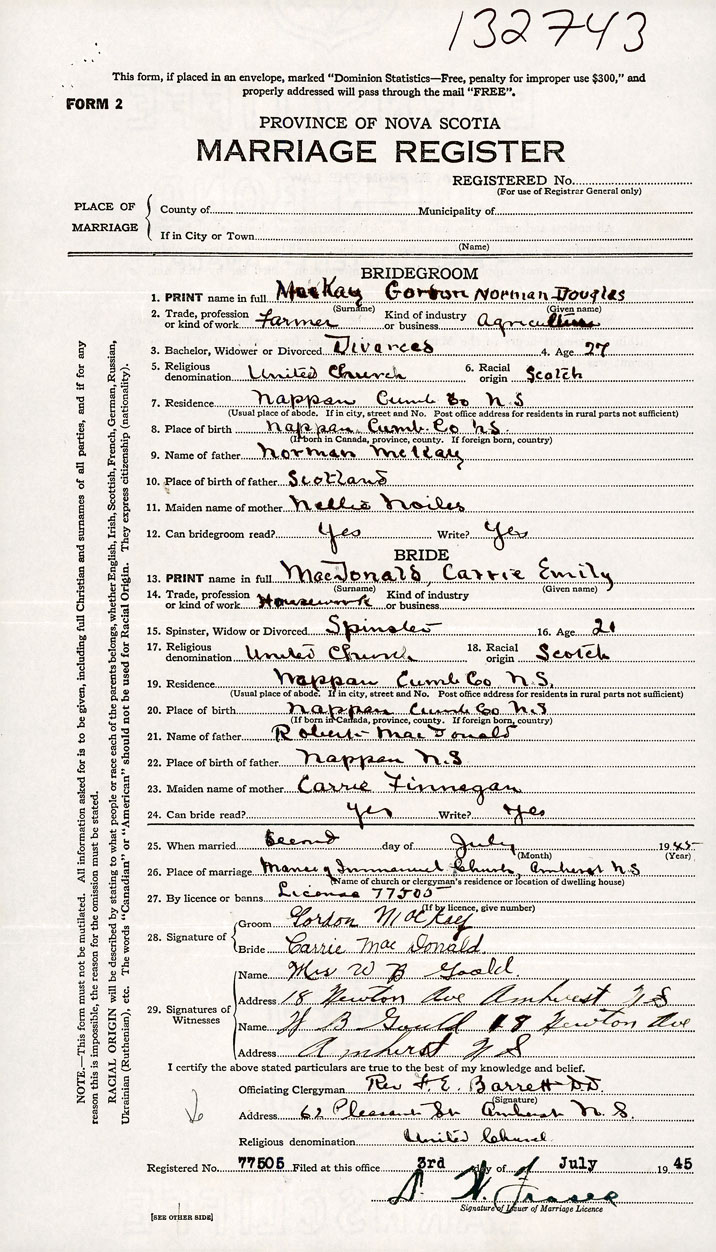 132743
This form, if placed in an envelope, marked "Dominion Statistics—Free, penalty for improper use $300," and
properly addressed will pass through the mail "FREE".
FORM 2
PROVINCE OF NOVA SCOTIA
MARRIAGE REGISTER
REGISTERED No.
(For use of Registrar General only)
PLACE OF MARRIAGE
County of Municipality of
If in City or Town
(Name)
BRIDEGROOM
1. PRINT name in full MacKay Gordon Norman Douglas
(Surname) (Given name)
2. Trade, profession or kind of work Farmer Kind of industry or business Agriculture
3. Bachelor, Widower or Divorced Divorced 4. Age 27
5. Religious denomination United Church 6. Racial origin Scotch
7. Residence Nappan Cumb Co N.S
(Usual place of abode. If in city, street and No. Post office address for residents in rural parts not sufficient)
8. Place of birth Nappan Cumb. Co N.S.
(If born in Canada, province, county. If foreign born, country)
9. Name of father Norman McKay
10. Place of birth of father Scotland
11. Maiden name of mother Nellie Noiles
12. Can bridegroom read? Yes Write? Yes
BRIDE
13. PRINT name in full MacDonald, Carrie Emily
(Surname) (Given name)
14. Trade, profession or kind of work Housework Kind of industry or business
15. Spinster, Widow or Divorced Spinster 16. Age 21
17. Religious denomination United Church 18. Racial origin Scotch
19. Residence Nappan Cumb Co N.S.
(Usual place of abode. If in city, street and No. Post office address for residents in rural parts not sufficient)
20. Place of birth Nappan Cumb Co N.S
(If born in Canada, province, county. If foreign born, country)
21. Name of father Robert MacDonald
22. Place of birth of father Nappan N.S
23. Maiden name of mother Carrie Finnegan
24. Can bride read? Yes Write? Yes
25. When married Second day of July 1945
(Month) (Year)
26. Place of marriage Manse of Immanuel Church, Amherst N S
(Name of church or clergyman's residence or location of dwelling house)
27. By licence or banns License 77505
(If by licence, give number)
28. Signature of
Groom Gordon MacKay
Bride Carrie MacDonald
29. Signatures of Witnesses
Name Mrs W B Gould
Address 18 Newton Ave Amherst N S
Name W B Gould 18 Newton Ave
Address Amherst N S
I certify the above stated particulars are true to the best of my knowledge and belief.
Officiating Clergyman Rev F. E. Barrett D.D.
(Signature)
Address 62 Pleasant St Amherst N. S.
Religious denomination United Church
Registered No. 77505 Filed at this office 3rd day of July 1945
Signature of Issuer of Marriage Licence
[SEE OTHER SIDE]
NOTE.—This form must not be mutilated. All information asked for is to be given, including full Christian and surnames of all parties, and if for any
reason this is impossible, the reason for the omission must be stated.
RACIAL ORIGIN will be described by stating to what people or race each of the parents belongs, whether English, Irish, Scottish, French, German, Russian,
Ukrainian (Ruthenian), etc. The words "Canadian" or "American" should not be used for Racial Origin. They express citizenship (nationality).